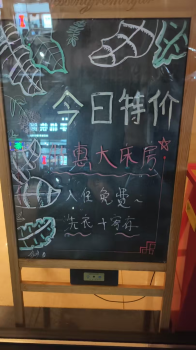 今日特价
惠大床房
入住免费~
洗衣+寄存